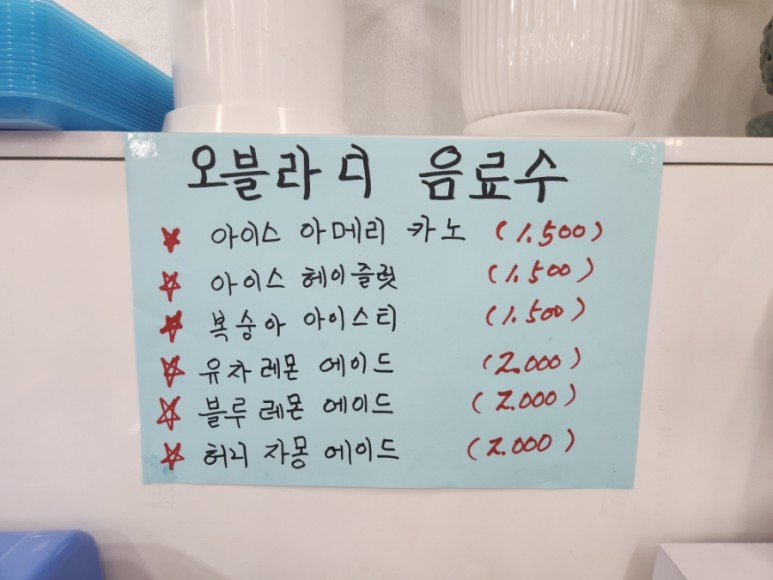 오블라디 음료수
☆ 아이스 아메리카노 (1.500)
☆ 아이스 헤이즐럿 (1.500)
☆ 복숭아 아이스티 (1.500)
☆ 유자레몬 에이드 (2.000)
☆ 블루레몬 에이드 (2.000)
☆ 허니 자몽 에이드 (2.000)